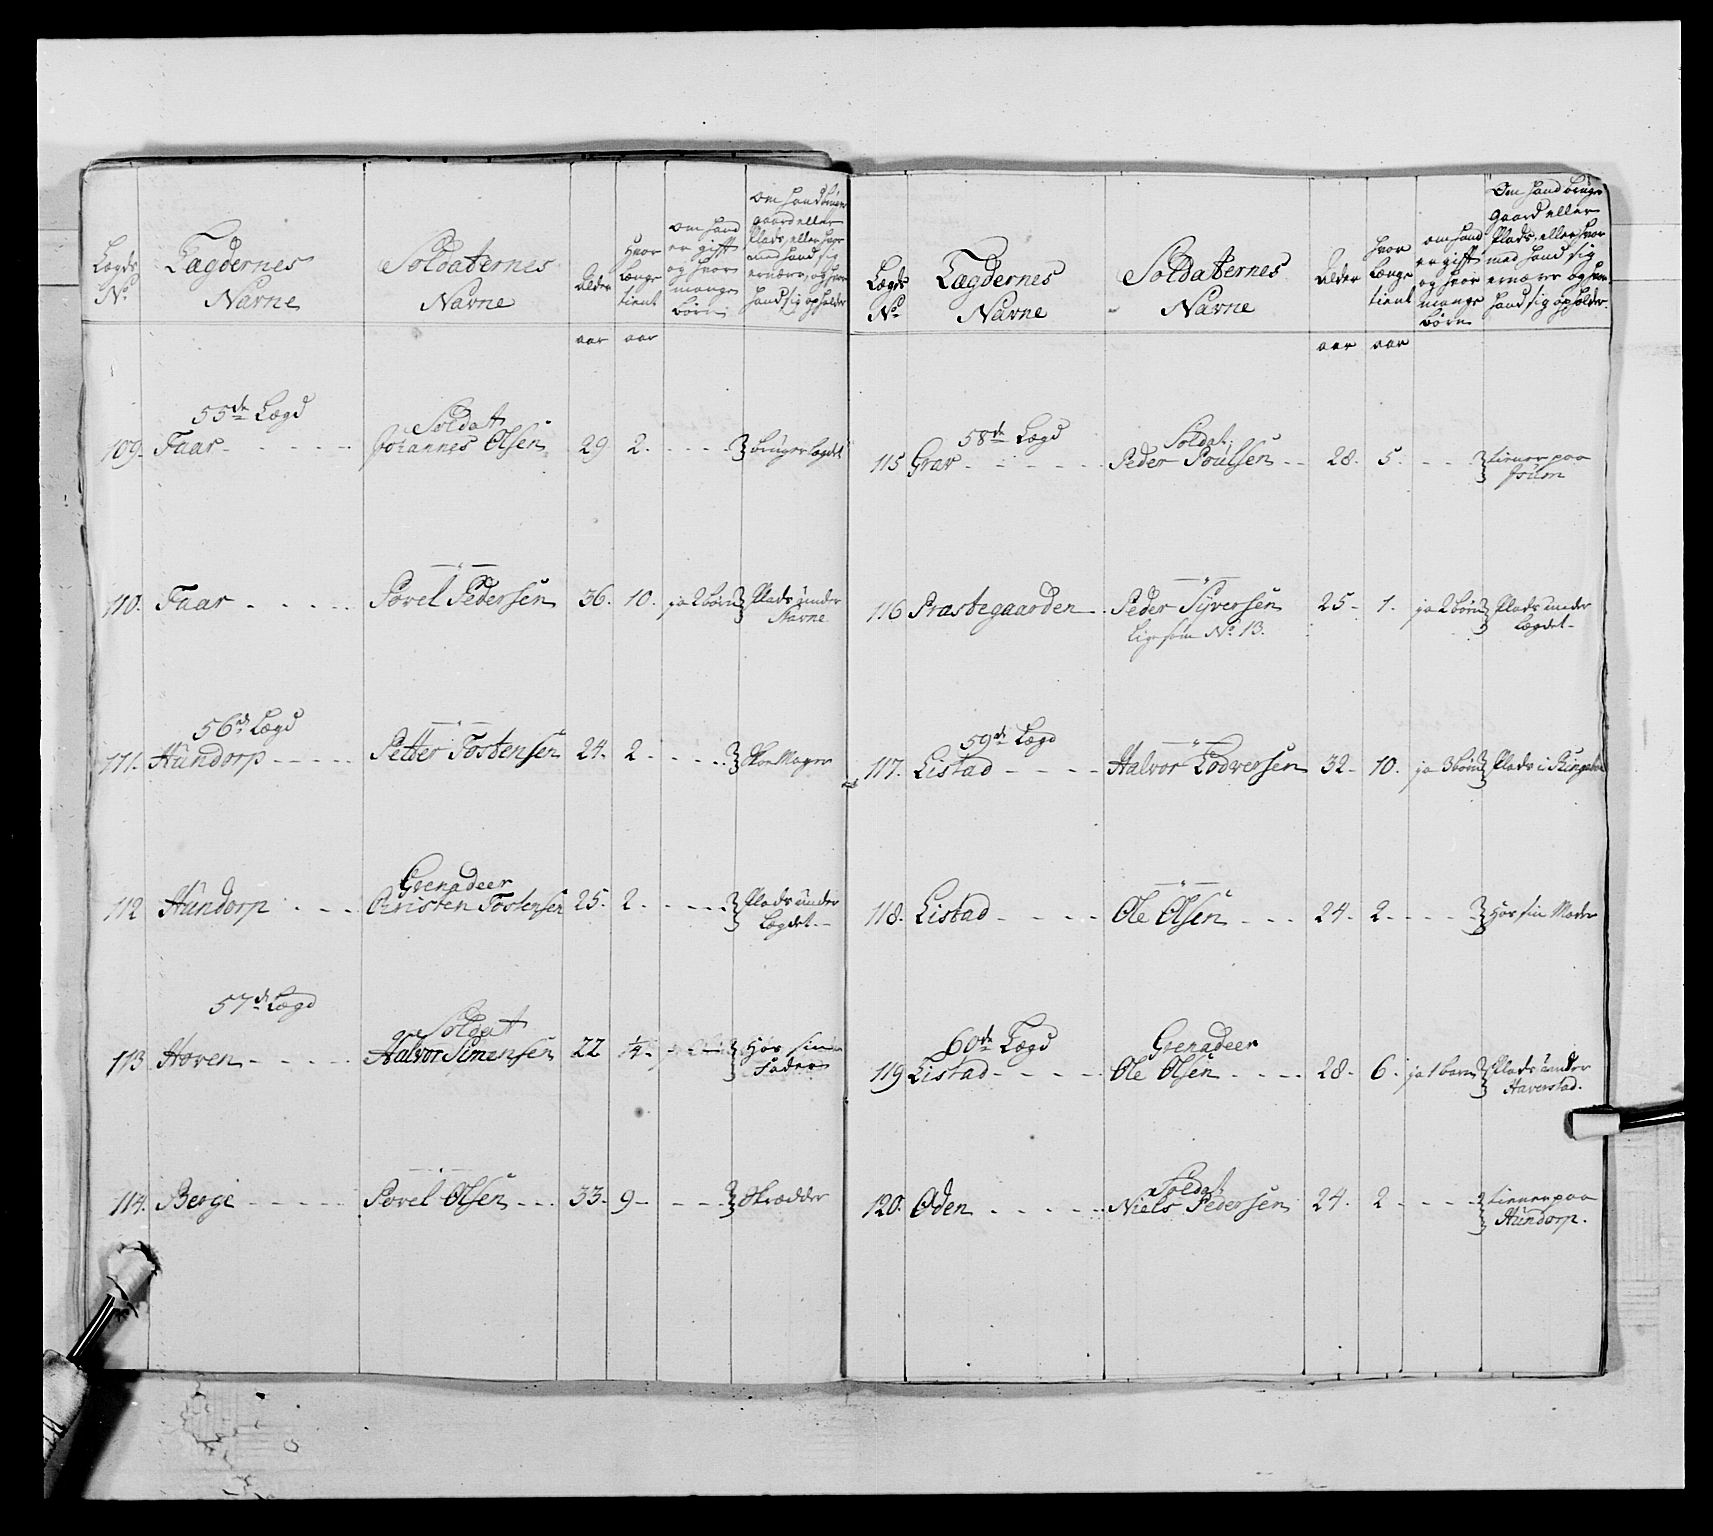 Lægds No | Lægdernes Navne | Soldaternes Navne | Alder | Hvor længe tient | om hand er gift og hvor mange børn | om hand bruger gaard eller Plads, eller hvor med hand sig ernære, og hvor hand sig opholder
aar aar
55de Lægd
Soldat
109. Faar - - - - - Johannes Olsen 29 2. - - - - bruger lægdet
110. Faar - - - - - Povel Pedersen 36. 10. ja 2 børn Plads under
Navne
56de Lægd
111. Hundorp - - - - - Petter Tostensen 24. 2 - - - - - Skoe Mager
Grenadeer
112 Hundorp - - - Christen Tostensen 25. 2. - - - - - Plads under
Lægdet
57de Lægd
Soldat
113 Hoven - - - - - Halvor Simensen 22 1/4 Hos sin
Fader
114. Berge - - - - - Povel Olsen - - - 33. 9 - - - - Skrædder
Lægds No | Lægdernes Navne | Soldaternes Navne | Alder | hvor længe tient | om hand er gift og hvor mange børn | Om hand bruger Gaard eller Plads, eller hvor med hand sig ernære og hvor hand sig opholder
aar aar
58de Lægd
Soldat
115 Grav - - - - - Peder Poulsen - - 28. 5. - - - tiener paa
116 Præstegaarden Peder Syversen 25 - 1. ja 2 børn Plads under
Ligesom No 13. Lægdet
59de Lægd
117. Listad - - - - Halvor Lodversen 32 - 10. ja 3 børn Plads i
118. Listad - - - - Ole Olsen - - - 24. 2 - - - - Hos sin Moder
60de Lægd
Grenadeer
119 Listad - - - - - Ole Olsen - - - - 28. 6. ja 1 barn Plads under
Haverstad.
Soldat
120. Oden - - - - - Niels Pedersen 24. 2 - - - - tiener paa
Hundorp.